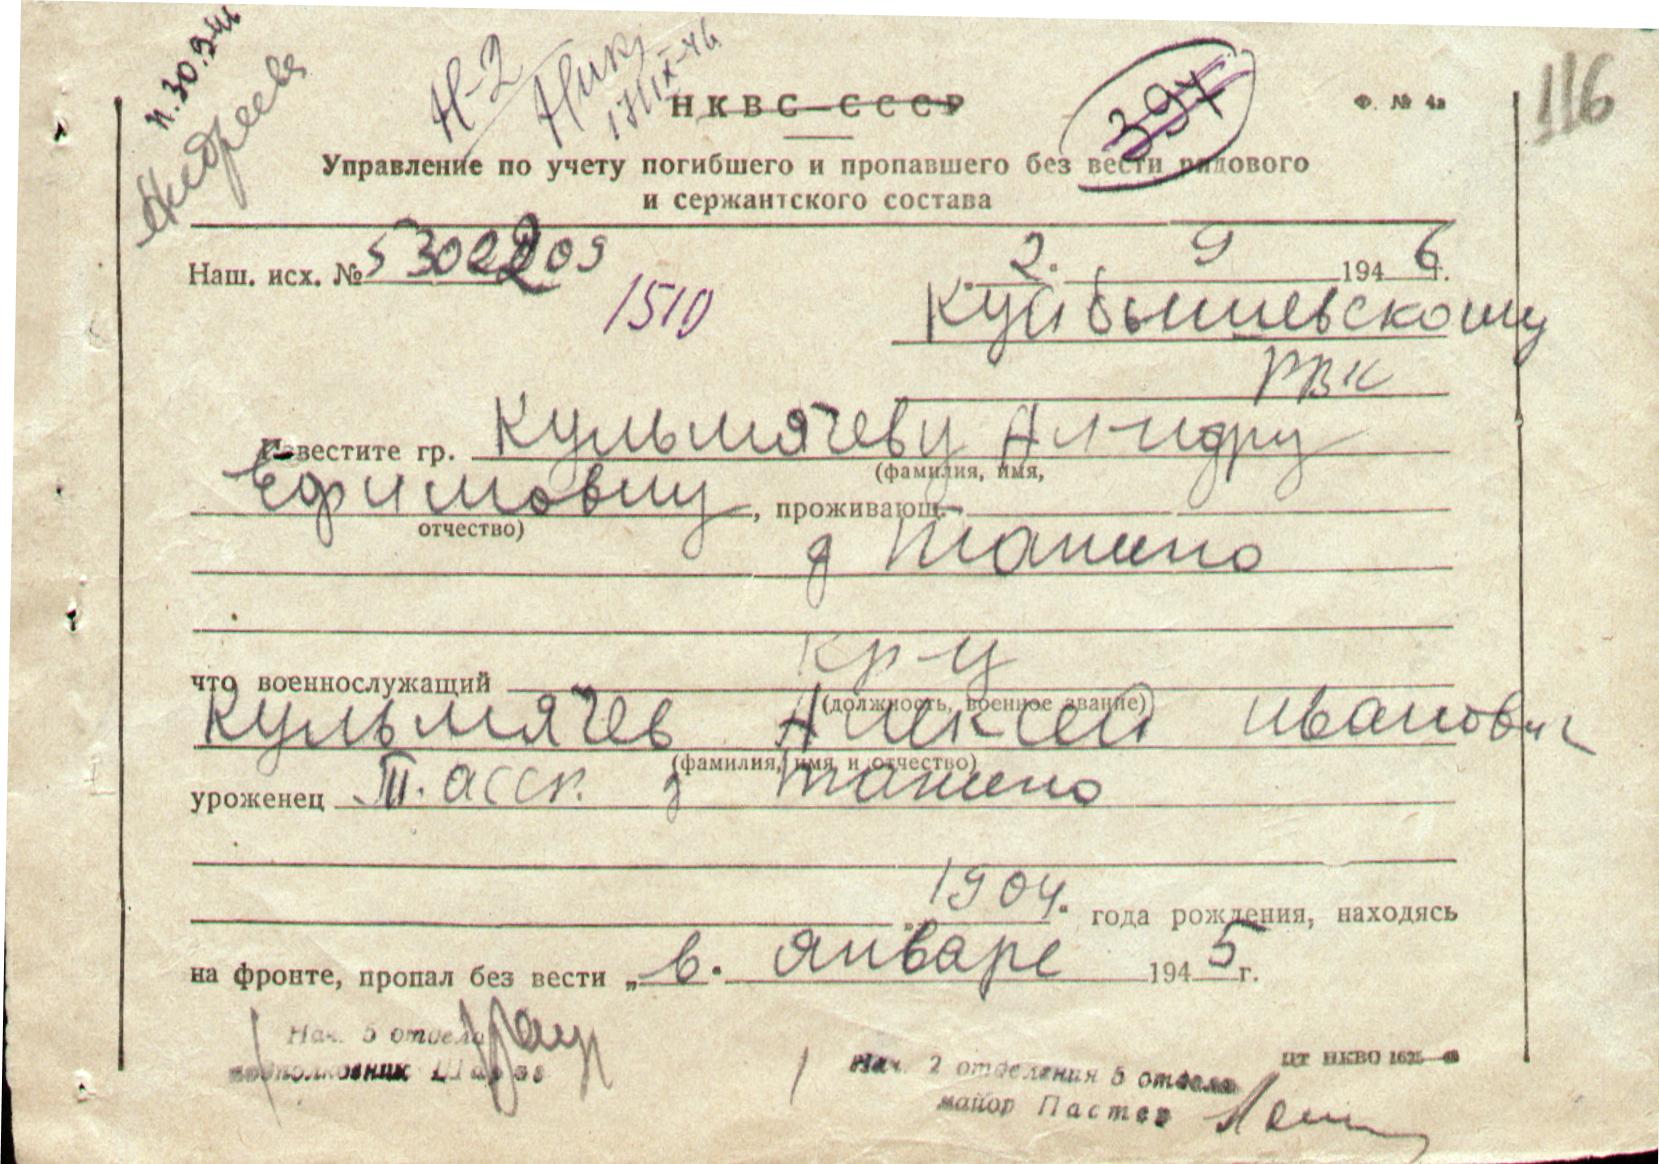 116
Н-2
397
НКВС СССР
Ф. № 4а
Управление по учету погибшего и пропавшего без вести рядового
и сержантского состава
Наш. исх. № 5302209
2. 9 1946г.
1510
Куйбышевскому
РВК
Известите гр. Кульмячеву Ал-ндру
(фамилия, имя,
Ефимовичу, проживающ.
отчество)
д Танино
что военнослужащий кр-ц
(должность, военное звание)
Кульмячев Алексей Иванович
(фамилия, имя и отчество)
уроженец Т.АССР. д Танино
„1904. года рождения, находясь
на фронте, пропал без вести „в. январе 1945г.
Нач. 5 отдела
подполковник
Нач. 2 отделения 5 отдела
майор Пастев
ЦТ НКВО